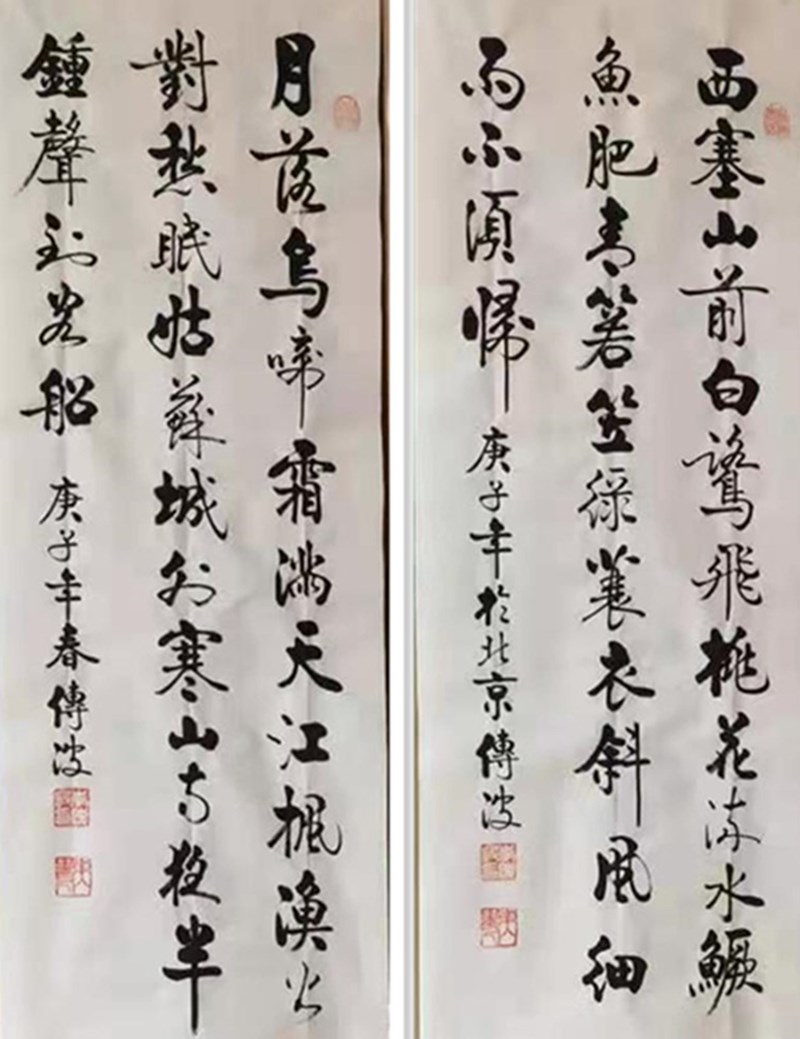 西塞山前白鷺飛桃花流水鱖
魚肥青箬笠綠蓑衣斜風細
雨不須歸
庚子年於北京傳波
月落烏啼霜滿天江楓漁火
對愁眠姑蘇城外寒山寺夜半
鍾聲到客船
庚子年春傳波